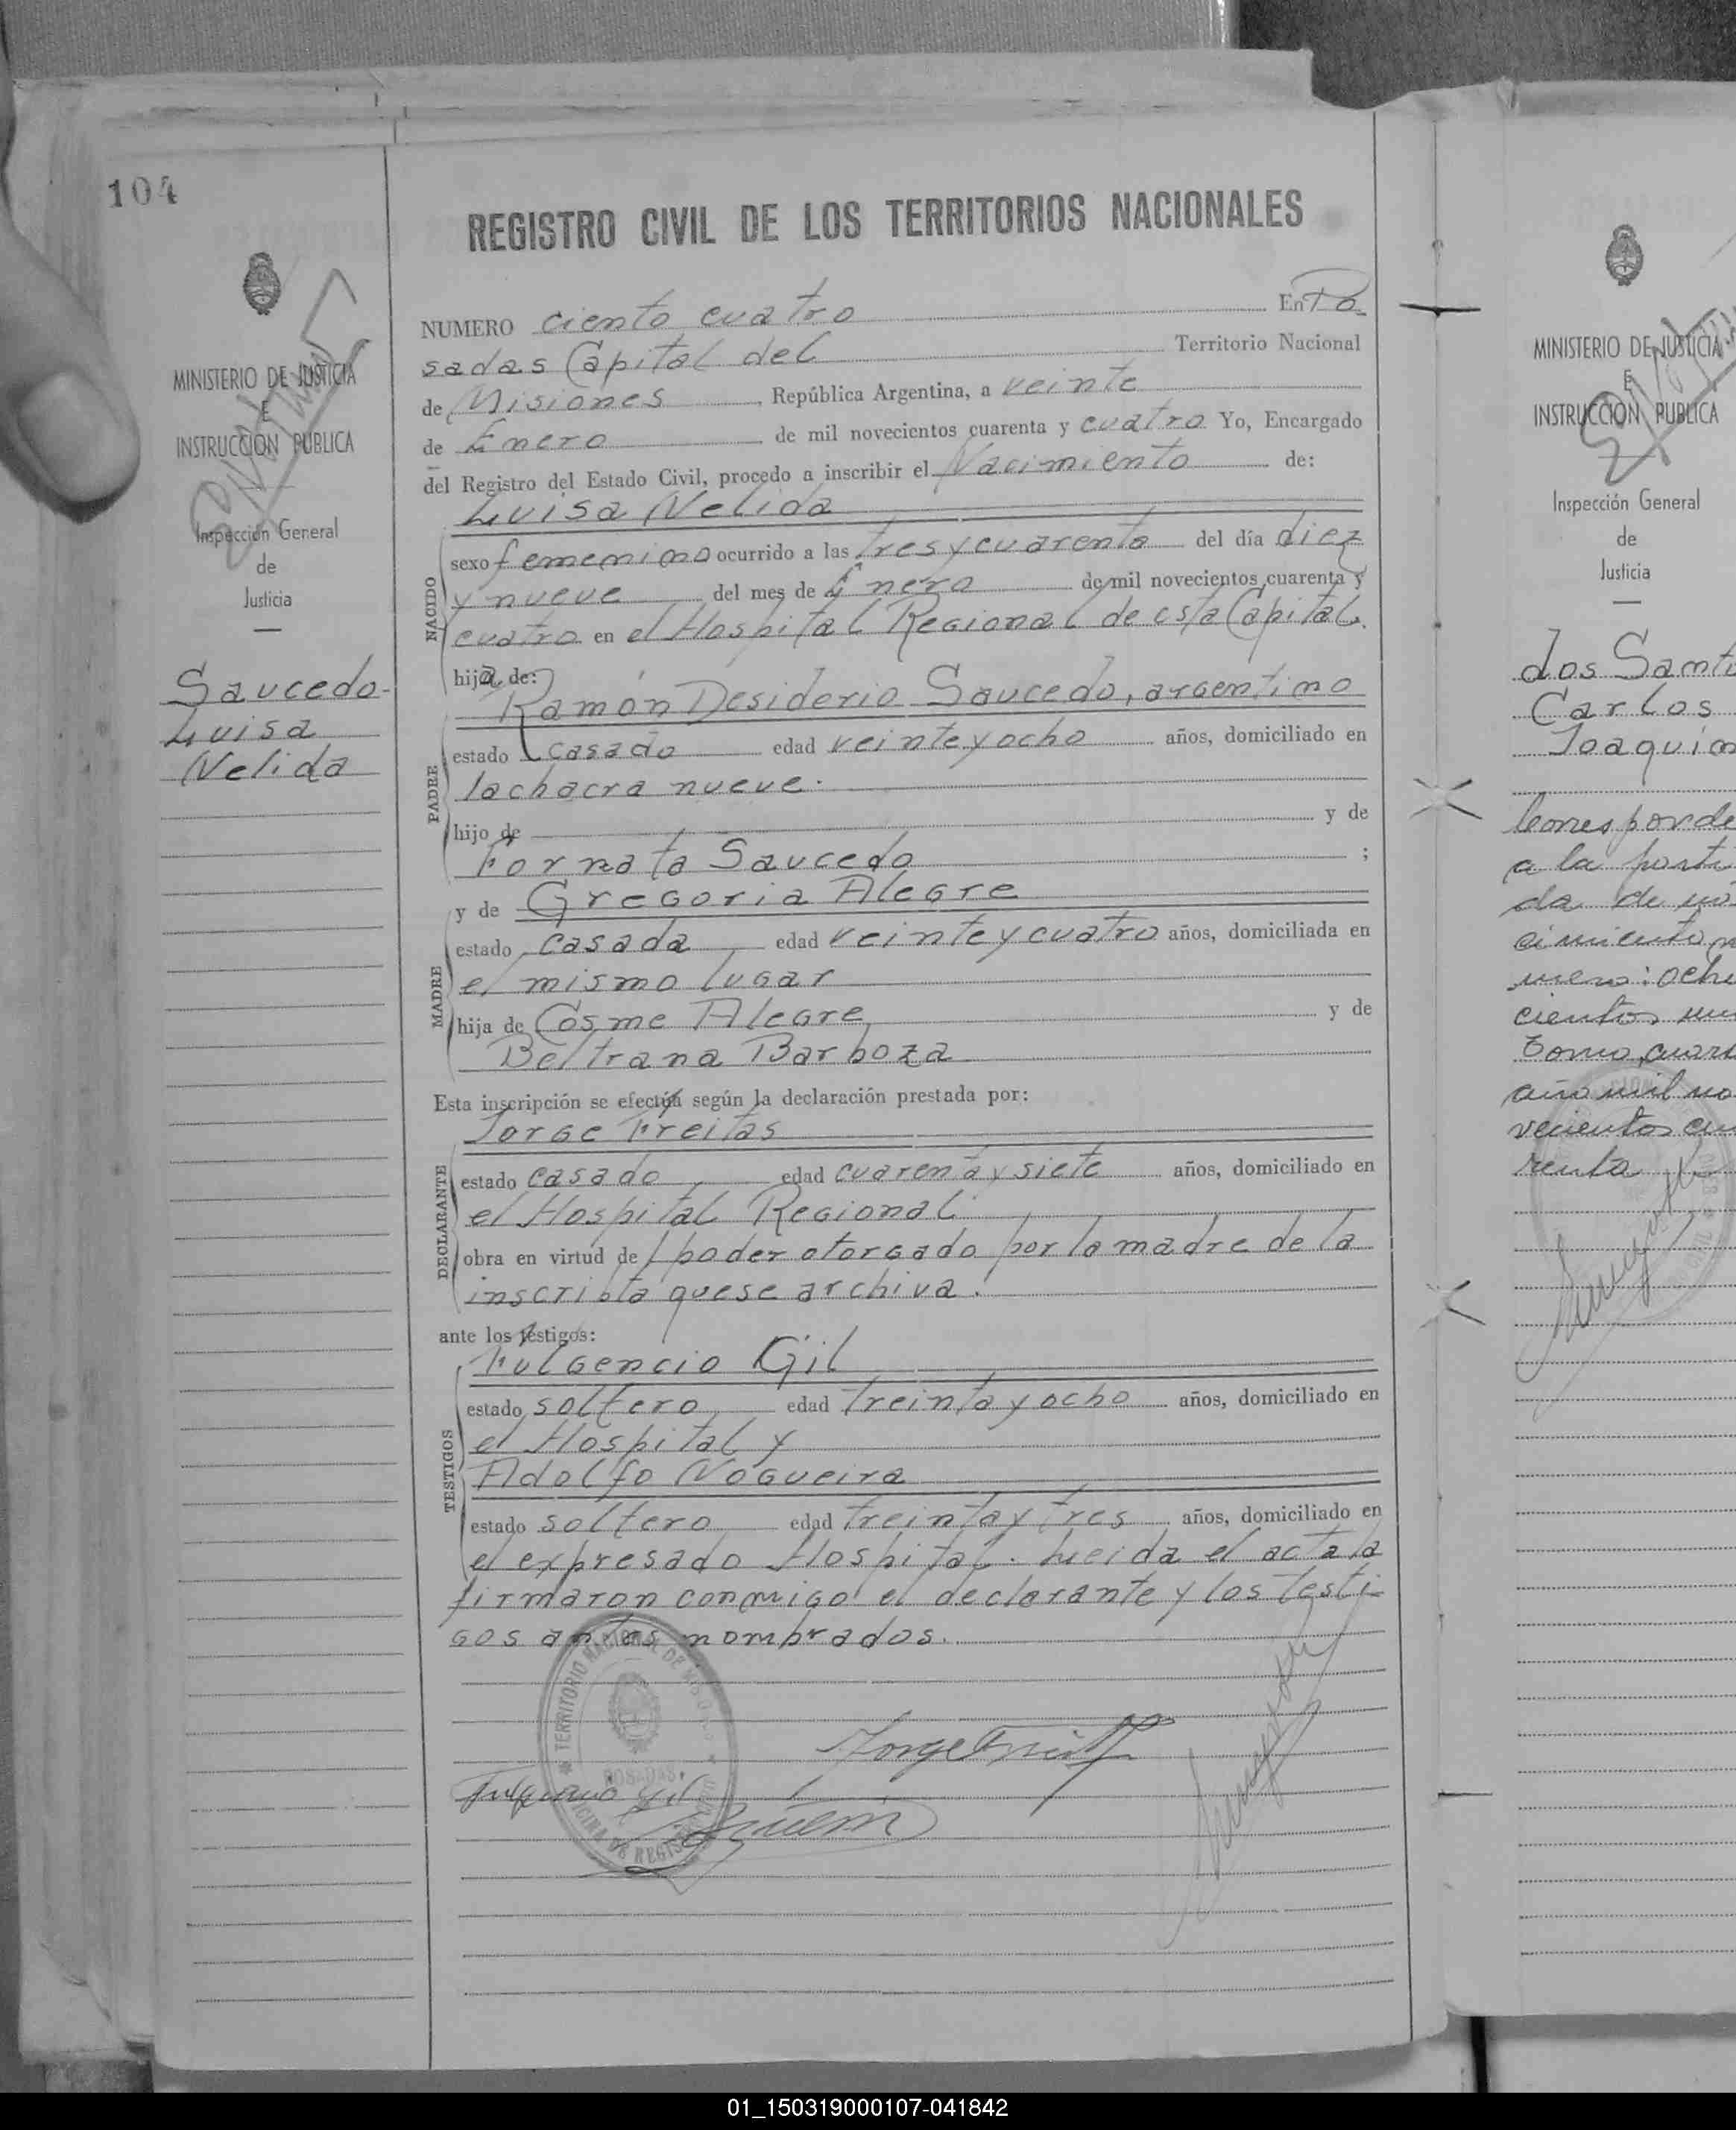 104
REGISTRO CIVIL DE LOS TERRITORIOS NACIONALES
NUMERO ciento cuatro En Po
sadas Capital del Territorio Nacional
de Misiones, República Argentina, a veinte
de Enero de mil novecientos cuarenta y cuatro Yo, Encargado
del Registro del Estado Civil, procedo a inscribir el Nacimiento de:
Luisa Nelida
NACIDO
sexo femenino ocurrido a las tres y cuarenta del día diez
y nueve del mes de Enero de mil novecientos cuarenta y
cuatro en el Hospital Regional de esta Capital.
hija de:
Ramón Desiderio Saucedo, argentino
PADRE
estado casado edad veinte y ocho años, domiciliado en
la chacra nueve.
hijo de y de
Fornata Saucedo ;
y de Gregoria Alegre
MADRE
estado casada edad veinte y cuatro años, domiciliada en
el mismo lugar
hija de Cosme Alegre y de
Beltrana Barboza
Esta inscripción se efectúa según la declaración prestada por:
Jorge Freitas
DECLARANTE
estado casado edad cuarenta y siete años, domiciliado en
el Hospital Regional
obra en virtud de poder otorgado por la madre de la
inscripta que se archiva.
ante los testigos:
Fulgencio Gil
TESTIGOS
estado soltero edad treinta y ocho años, domiciliado en
el Hospital y
Adolfo Nogueira
estado soltero edad treinta y tres años, domiciliado en
el expresado Hospital. Leida el acta la
firmaron conmigo el declarante y los testi-
gos antes nombrados.
TERRITORIO NACIONAL DE MISIONES
POSADAS
OFICINA DE REGISTRO CIVIL
Jorge Freitas
Fulgencio Gil
MINISTERIO DE JUSTICIA
E
INSTRUCCION PUBLICA
Inspección General
de
Justicia
Saucedo
Luisa
Nelida
MINISTERIO DE JUSTICIA
E
INSTRUCCION PUBLICA
Inspección General
de
Justicia
dos Santo
Carlos
Joaquin
Corresponde
a la parti
da de na
cimiento nu
mero: ocho
cientos
Tomo, cuart
año mil no
vecientos cua
renta
01_150319000107-041842